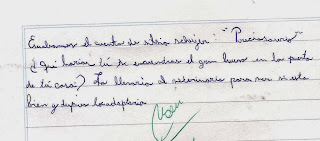 Escuchamos el cuento de silvia schujer: "Puciosaurio"
¿Qué harian tú se encuendras el gran huevo en la puerta
de tú casa? La llevaria al veterinario para ver si esta
bien y despues lo adoptaria